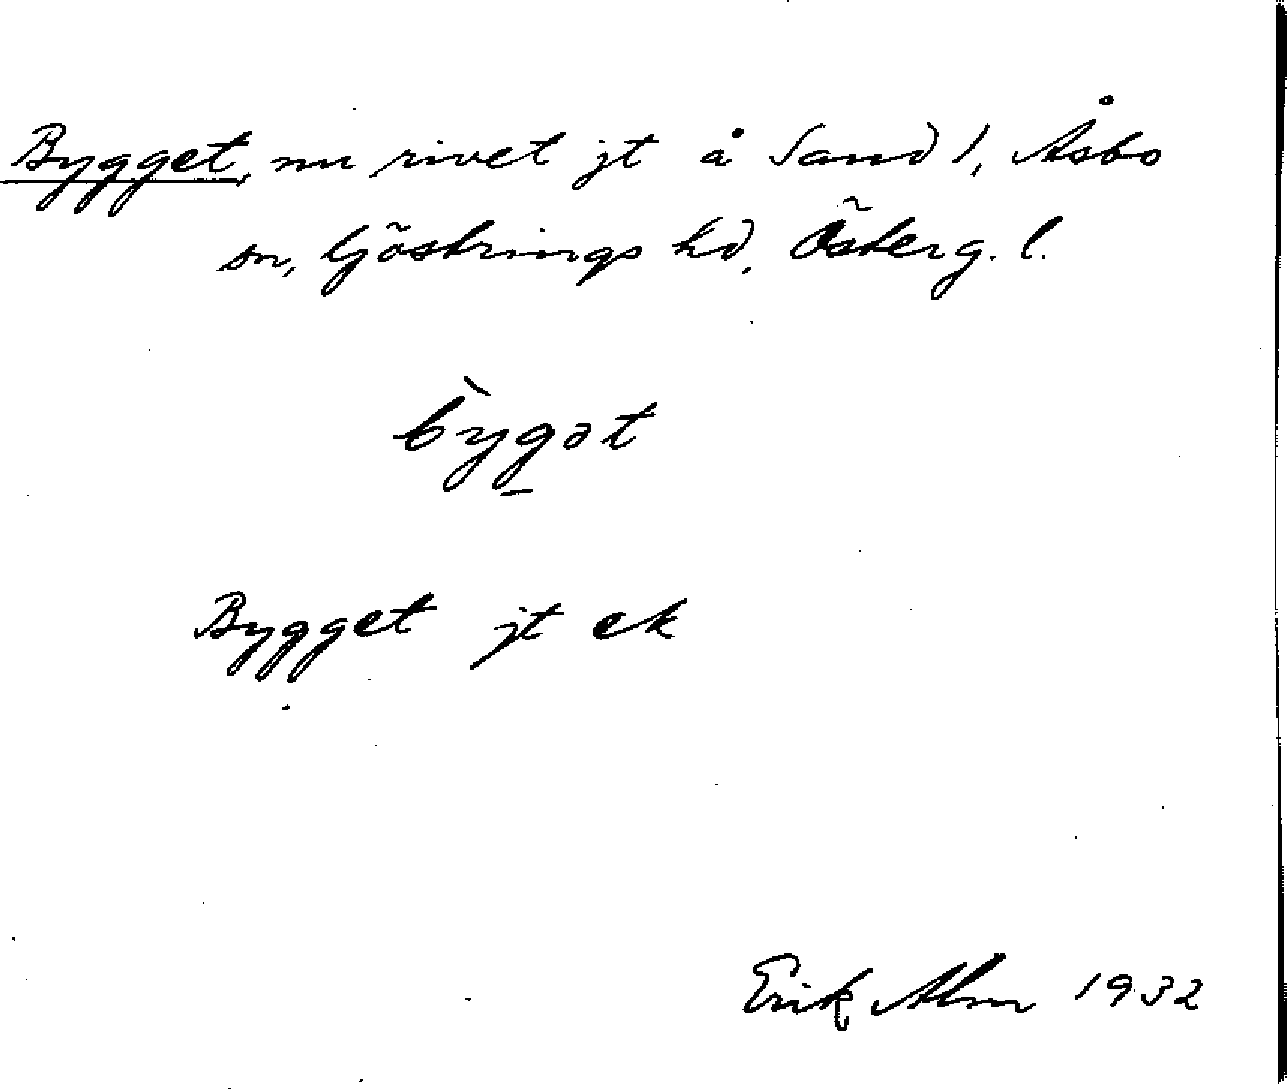 Bygget, nu rivet jt å Sand 1, Åsbo
sn, Göstrings hd, Österg. l.
bỳg̱ət
Bygget jt ek
Erik Alm 1932